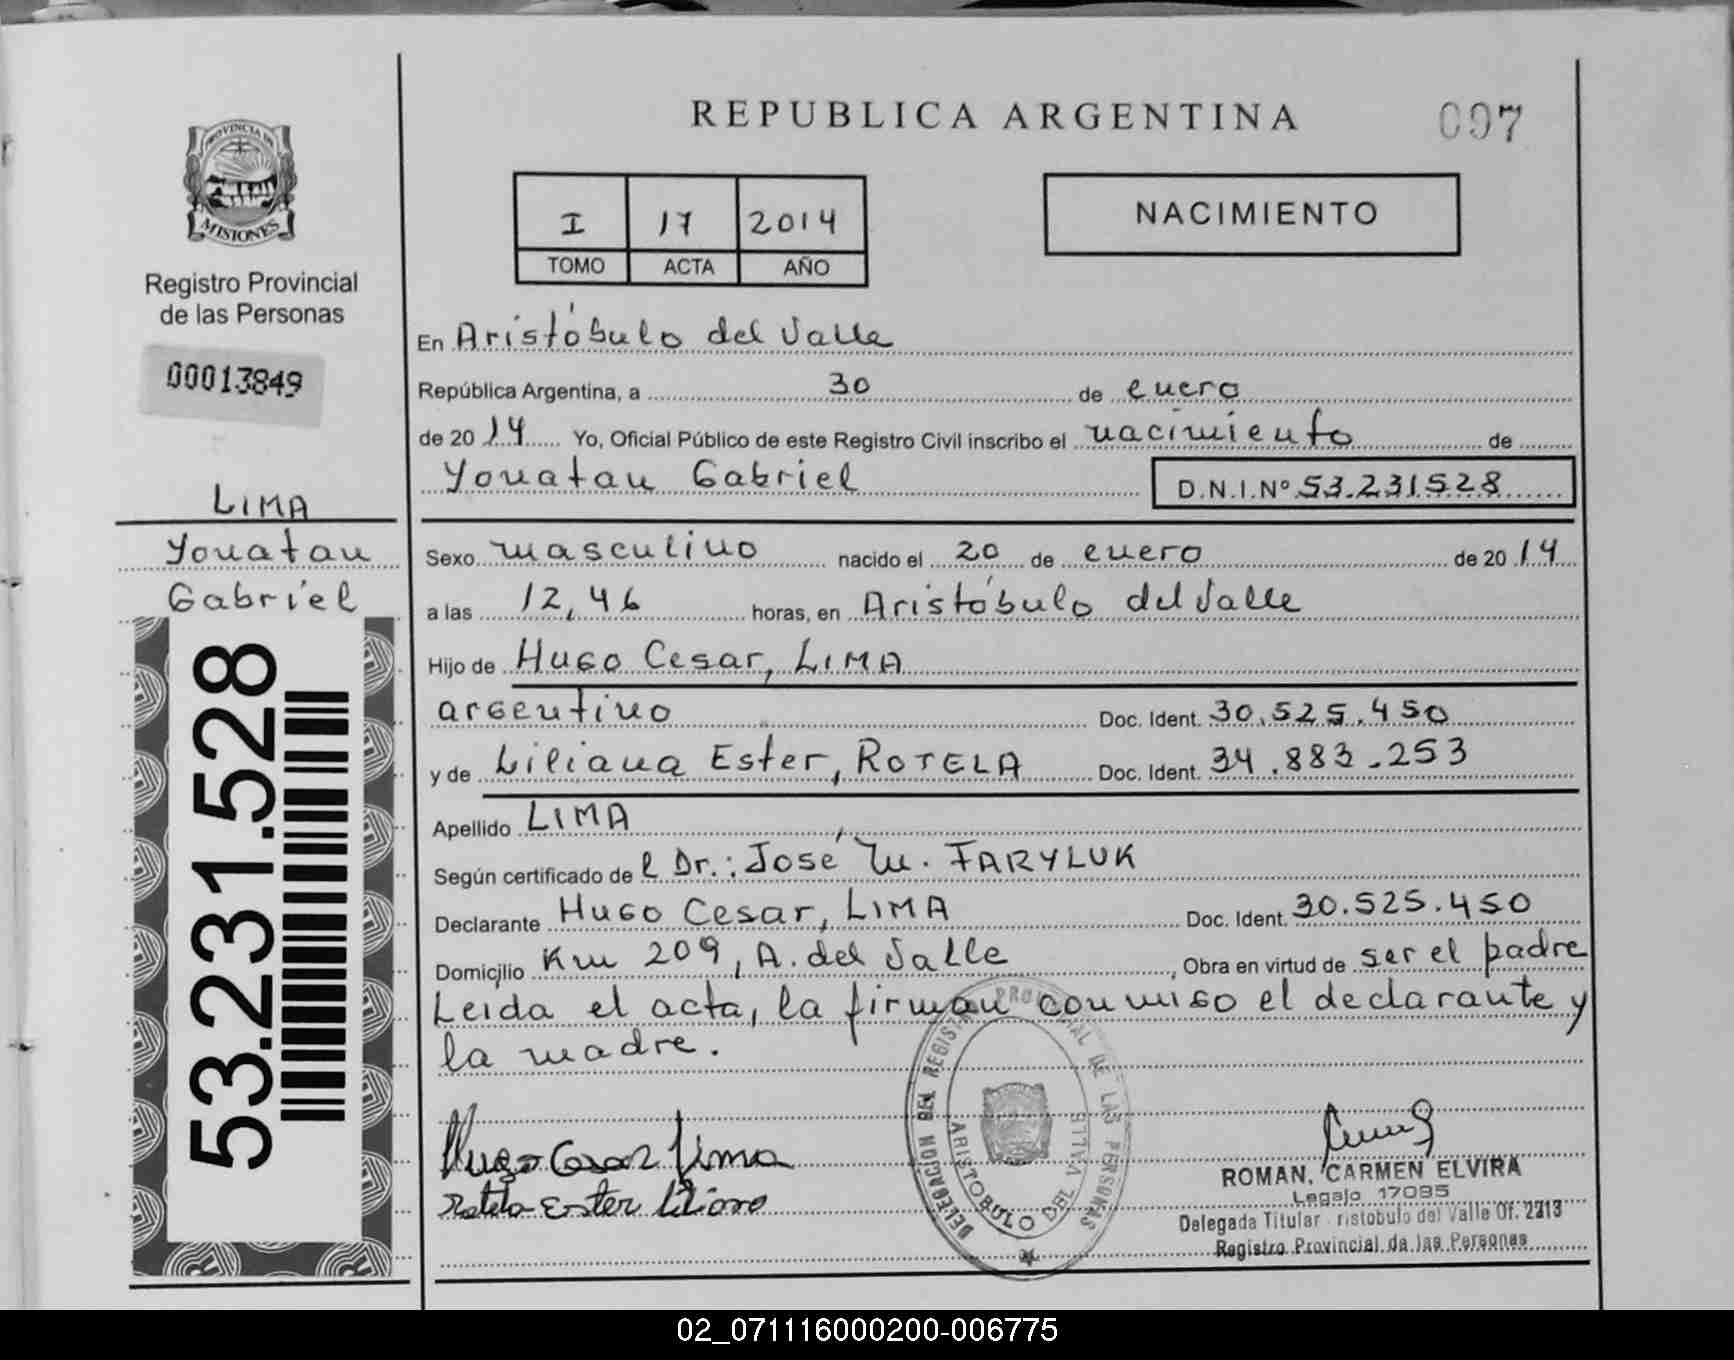 REPUBLICA ARGENTINA
097
PROVINCIA DE
MISIONES
Registro Provincial
de las Personas
00013849
LIMA
Yonatan
Gabriel
53.231.528
I 17 2014
TOMO ACTA AÑO
NACIMIENTO
En Aristóbulo del Valle
República Argentina, a 30 de enero
de 2014 Yo, Oficial Público de este Registro Civil inscribo el nacimiento de
Yonatan Gabriel D.N.I.Nº 53.231.528
Sexo masculino nacido el 20 de enero de 2014
a las 12,46 horas, en Aristóbulo del Valle
Hijo de Hugo Cesar, LIMA
argentino Doc. Ident. 30.525.450
y de Liliana Ester, ROTELA Doc. Ident. 34.883.253
Apellido LIMA
Según certificado de l Dr.: José M. FARYLUK
Declarante Hugo Cesar, LIMA Doc. Ident. 30.525.450
Domicilio Km 209, A. del Valle, Obra en virtud de ser el padre
Leida el acta, la firman conmigo el declarante y
la madre.
Hugo Cesar Lima
Rotela Ester Liliana
DELEGACION DEL REGISTRO PROVINCIAL DE LAS PERSONAS
ARISTOBULO DEL VALLE
ROMAN, CARMEN ELVIRA
Legajo 17085
Delegada Titular ristobulo del Valle Of. 2213
Registro Provincial de las Personas
02_071116000200-006775